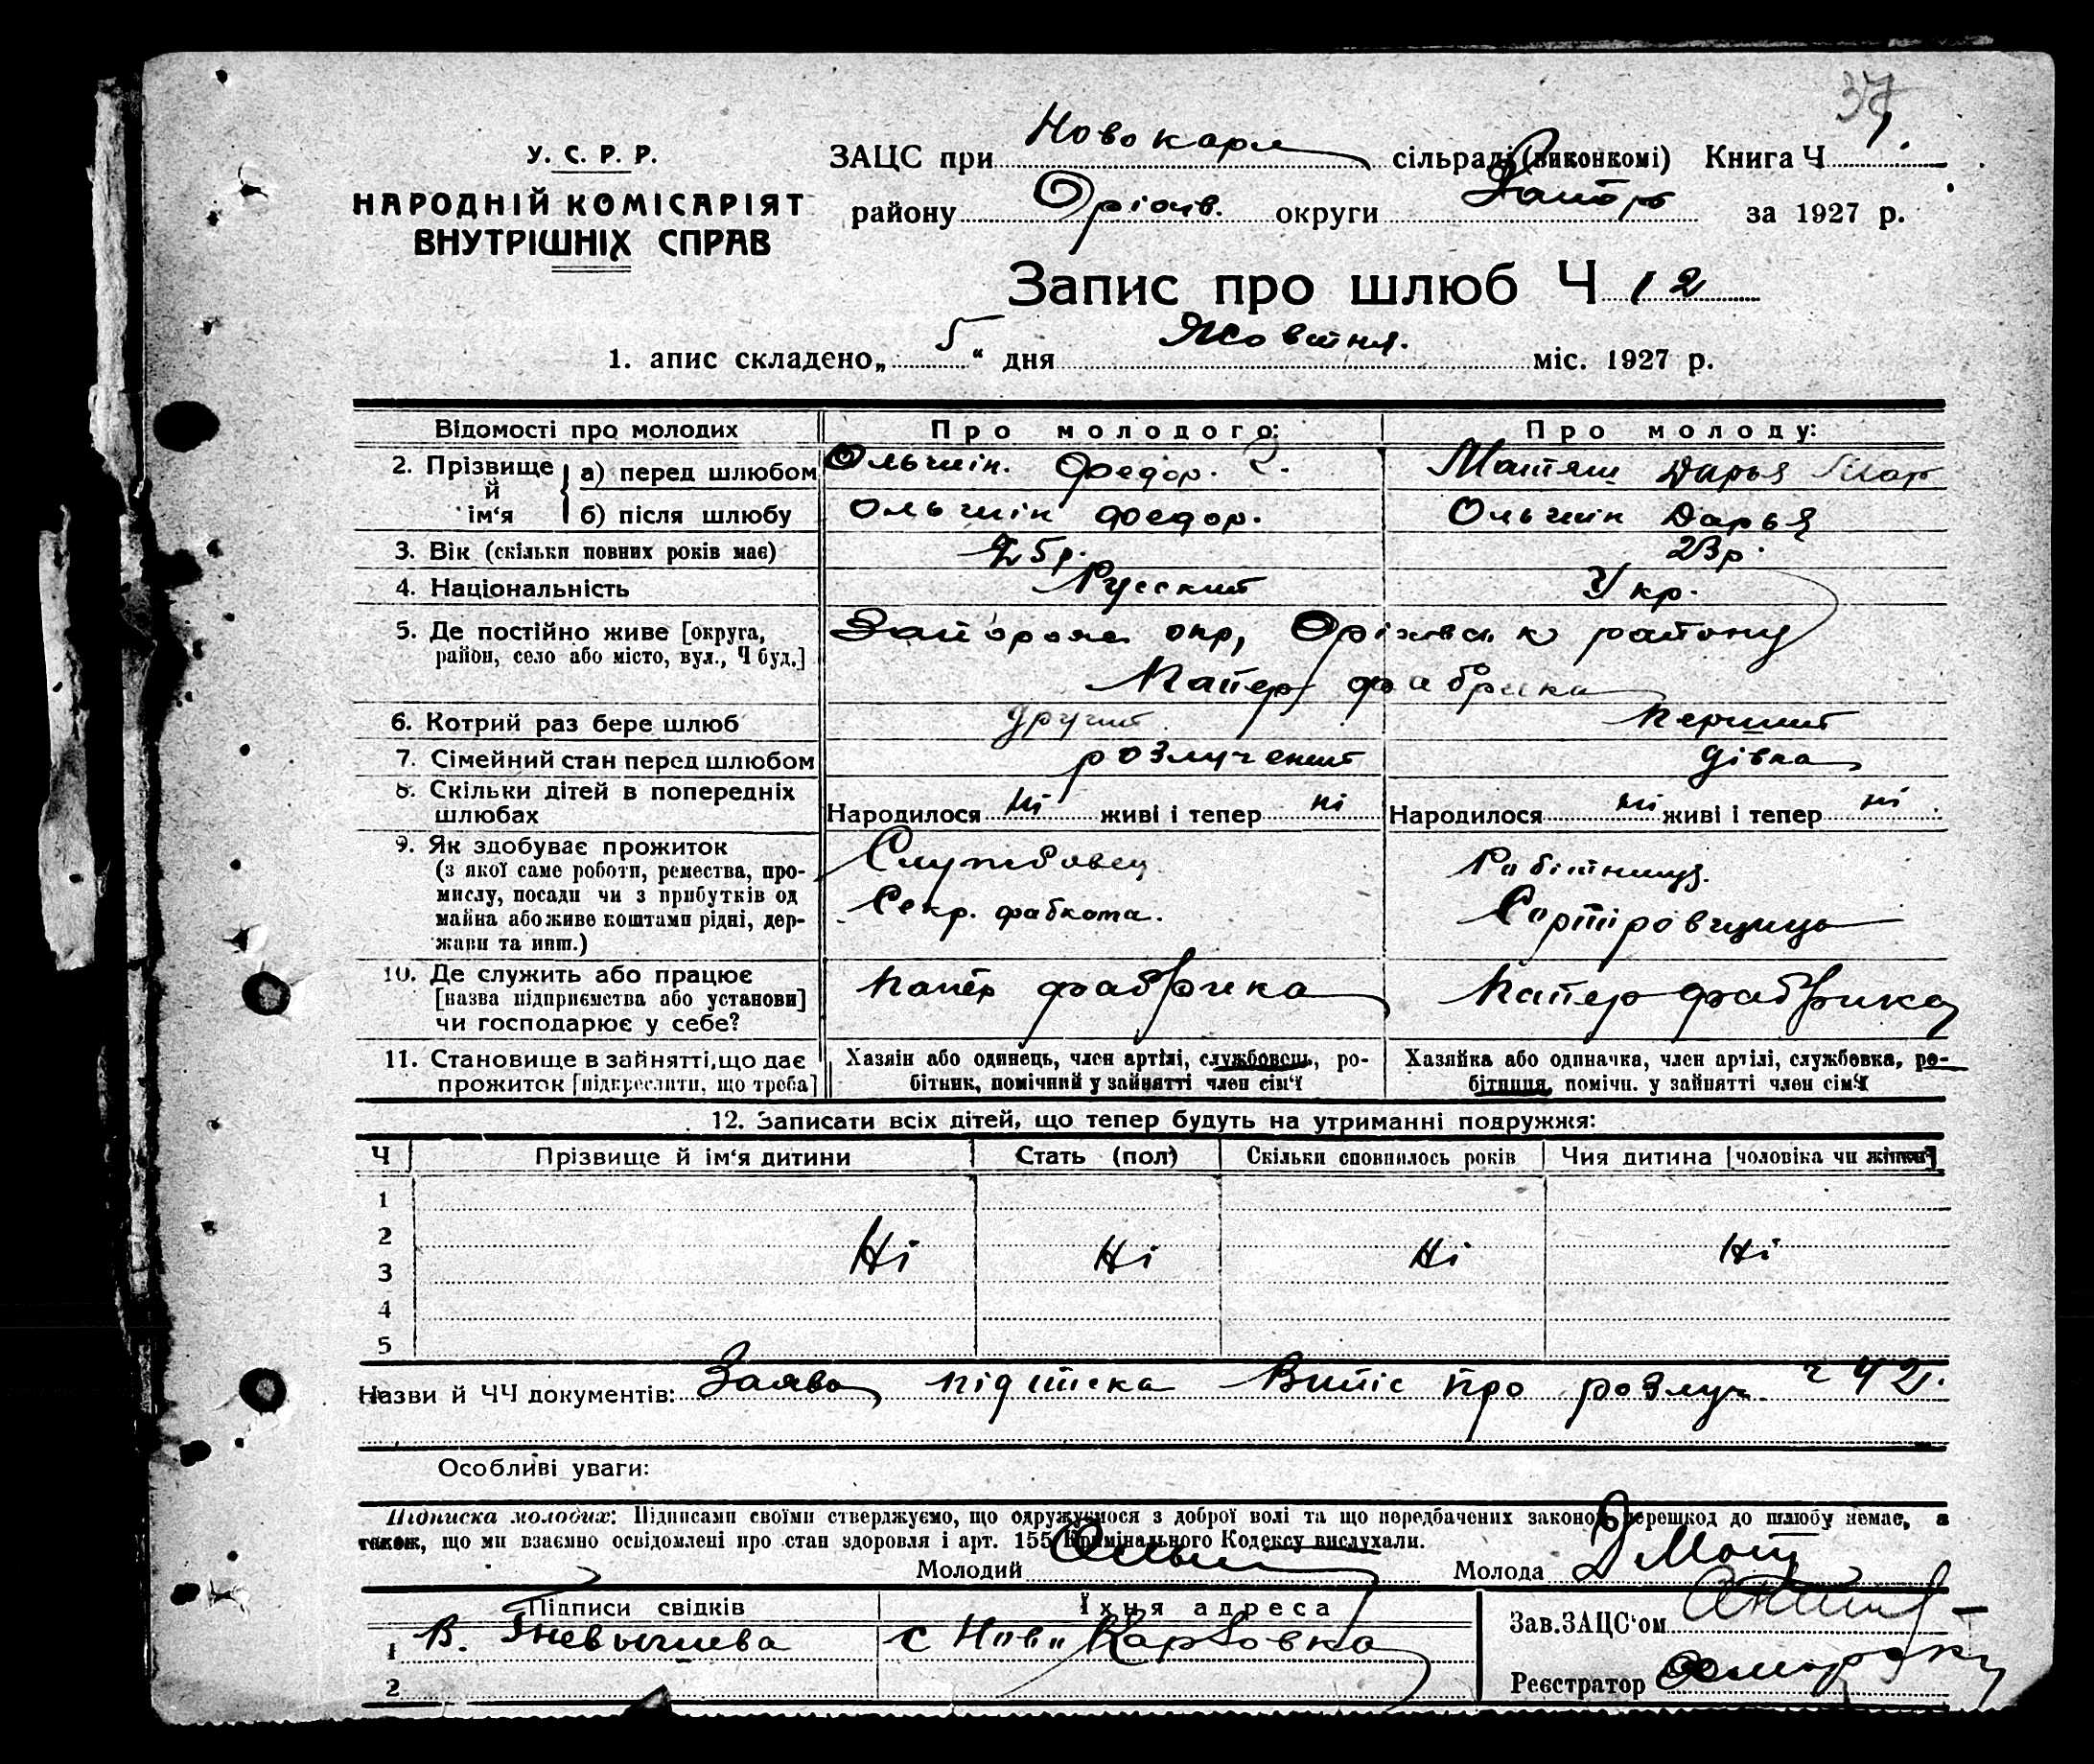 37
У. С. Р. Р.
НАРОДНІЙ КОМІСАРІЯТ
ВНУТРІШНІХ СПРАВ
ЗАЦС при Новокарл сільраді (виконкомі) Книга Ч 1.
району Оріхів. округи Запор за 1927 р.
Запис про шлюб Ч 12
1. апис складено „ 5 “ дня Жовтня. міс. 1927 р.
Відомості про молодих Про молодого: Про молоду:
2. Прізвище й ім‘я а) перед шлюбом Ольшін. Федор. Матяш Дарья
б) після шлюбу Ольшін Федор. Ольшін Дарья
3. Вік (скільки повних років має) 25р. 23р.
4. Національність Русский Укр.
5. Де постійно живе [округа, район, село або місто, вул., Ч буд.] Запорож окр, Оріхівськ району
Папер фабрика
6. Котрий раз бере шлюб другий перший
7. Сімейний стан перед шлюбом розлучений дівка
8. Скільки дітей в попередніх шлюбах Народилося ні живі і тепер ні Народилося ні живі і тепер ні.
9. Як здобуває прожиток
(з якої саме роботи, ремества, про-
мислу, посади чи з прибутків од
майна або живе коштами рідні, дер-
жави та инш.)
Службовец
Секр. фабкома.
Робітниця.
Сортіровщица
10. Де служить або працює
[назва підприємства або установи]
чи господарює у себе?
Папер фабрика Папер фабрика
11. Становище в зайнятті, що дає
прожиток [підкреслити, що треба]
Хазяїн або одинець, член артілі, службовець, ро-
бітник, помічний у зайнятті член сім‘ї
Хазяйка або одиначка, член артілі, службовка, ро-
бітниця, помічн. у зайнятті член сім‘ї
12. Записати всіх дітей, що тепер будуть на утриманні подружжя:
Ч Прізвище й ім‘я дитини Стать (пол) Скільки сповнилось років Чия дитина [чоловіка чи жінки]
1
2 Ні Ні Ні Ні
3
4
5
Назви й ЧЧ документів: Заява підписка Витіс про розлуч ч 42.
Особливі уваги:
Підписка молодих: Підписами своїми стверджуємо, що одружуємося з доброї волі та що передбачених законом перешкод до шлюбу немає, а
також, що ми взаємно освідомлені про стан здоровля і арт. 155 Кримінального Кодексу вислухали.
Молодий Ольш Молода Д Мат
Підписи свідків Їхня адреса
1 В. Гневышева с Нов Карловка
2
Зав. ЗАЦС‘ом
Реєстратор